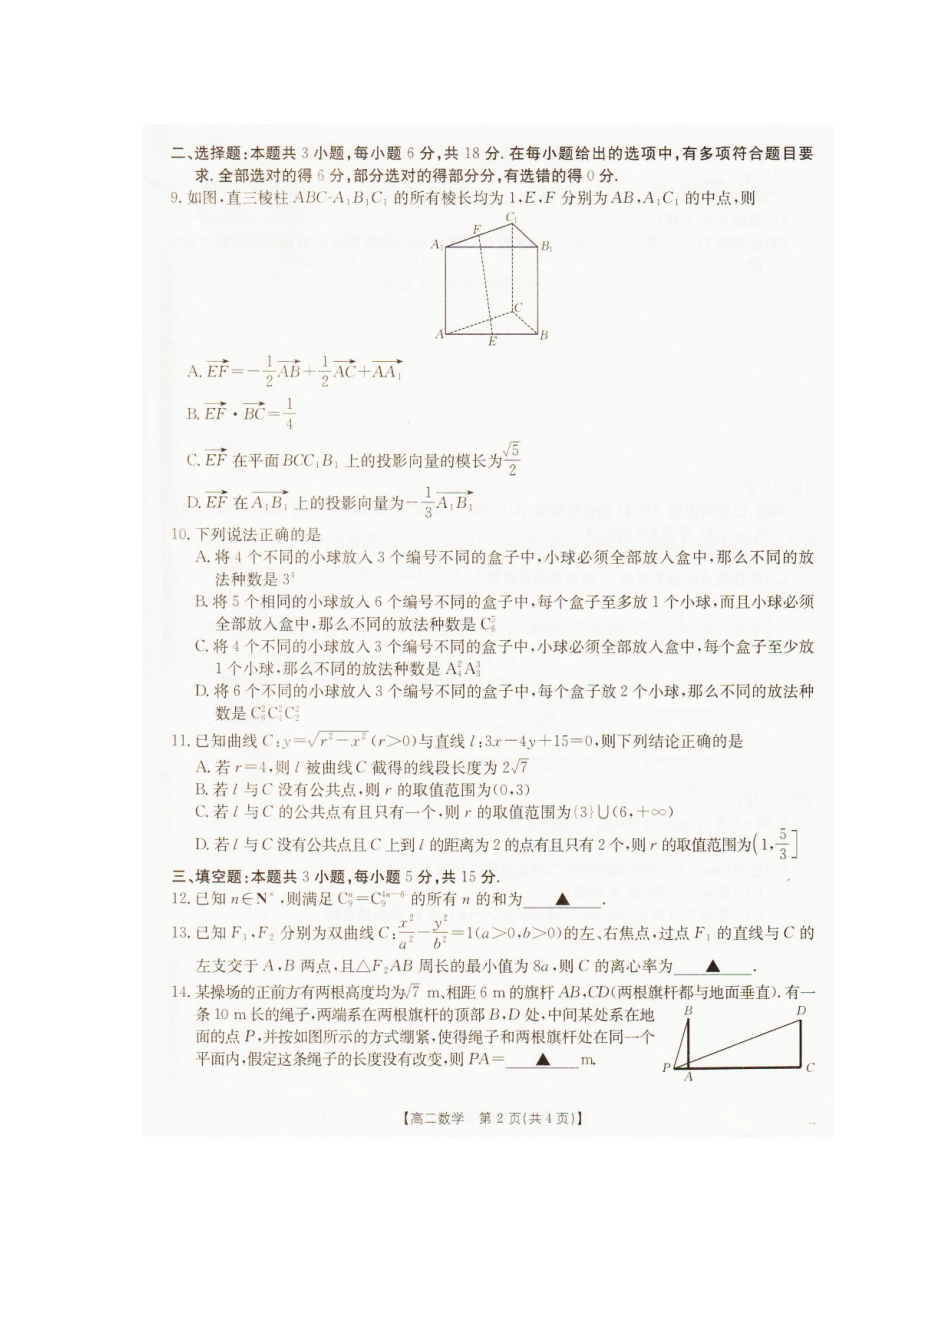 二、选择题:本题共 3 小题,每小题 6 分,共 18 分. 在每小题给出的选项中,有多项符合题目要
求. 全部选对的得 6 分,部分选对的得部分分,有选错的得 0 分.
9. 如图,直三棱柱 ABC-A₁B₁C₁ 的所有棱长均为 1,E,F 分别为 AB,A₁C₁ 的中点,则
C₁
F
A₁ B₁
C
A E B
A. $\overrightarrow{EF}=-\frac{1}{2}\overrightarrow{AB}+\frac{1}{2}\overrightarrow{AC}+\overrightarrow{AA_1}$
B. $\overrightarrow{EF}\cdot\overrightarrow{BC}=\frac{1}{4}$
C. $\overrightarrow{EF}$ 在平面 BCC₁B₁ 上的投影向量的模长为$\frac{\sqrt{5}}{2}$
D. $\overrightarrow{EF}$ 在 $\overrightarrow{A_1B_1}$ 上的投影向量为$-\frac{1}{3}\overrightarrow{A_1B_1}$
10. 下列说法正确的是
A. 将 4 个不同的小球放入 3 个编号不同的盒子中,小球必须全部放入盒中,那么不同的放
法种数是 3⁴
B. 将 5 个相同的小球放入 6 个编号不同的盒子中,每个盒子至多放 1 个小球,而且小球必须
全部放入盒中,那么不同的放法种数是 $C_6^5$
C. 将 4 个不同的小球放入 3 个编号不同的盒子中,小球必须全部放入盒中,每个盒子至少放
1 个小球,那么不同的放法种数是 $A_4^2A_3^3$
D. 将 6 个不同的小球放入 3 个编号不同的盒子中,每个盒子放 2 个小球,那么不同的放法种
数是 $C_6^2C_4^2C_2^2$
11. 已知曲线 C:$y=\sqrt{r^2-x^2}$(r>0)与直线 l:3x-4y+15=0,则下列结论正确的是
A. 若 r=4,则 l 被曲线 C 截得的线段长度为 $2\sqrt{7}$
B. 若 l 与 C 没有公共点,则 r 的取值范围为(0,3)
C. 若 l 与 C 的公共点有且只有一个,则 r 的取值范围为{3}∪(6,+∞)
D. 若 l 与 C 没有公共点且 C 上到 l 的距离为 2 的点有且只有 2 个,则 r 的取值范围为$\left(1,\frac{5}{3}\right]$
三、填空题:本题共 3 小题,每小题 5 分,共 15 分.
12. 已知 n∈N*,则满足 $C_9^n=C_9^{4n-6}$ 的所有 n 的和为 ▲ .
13. 已知 F₁,F₂ 分别为双曲线 C:$\frac{x^2}{a^2}-\frac{y^2}{b^2}=1$(a>0,b>0)的左、右焦点,过点 F₁ 的直线与 C 的
左支交于 A,B 两点,且△F₂AB 周长的最小值为 8a,则 C 的离心率为 ▲ .
14. 某操场的正前方有两根高度均为$\sqrt{7}$ m、相距 6 m 的旗杆 AB,CD(两根旗杆都与地面垂直). 有一
条 10 m 长的绳子,两端系在两根旗杆的顶部 B,D 处,中间某处系在地
面的点 P,并按如图所示的方式绷紧,使得绳子和两根旗杆处在同一个
平面内,假定这条绳子的长度没有改变,则 PA= ▲ m.
B D
P A C
【高二数学 第 2 页(共 4 页)】